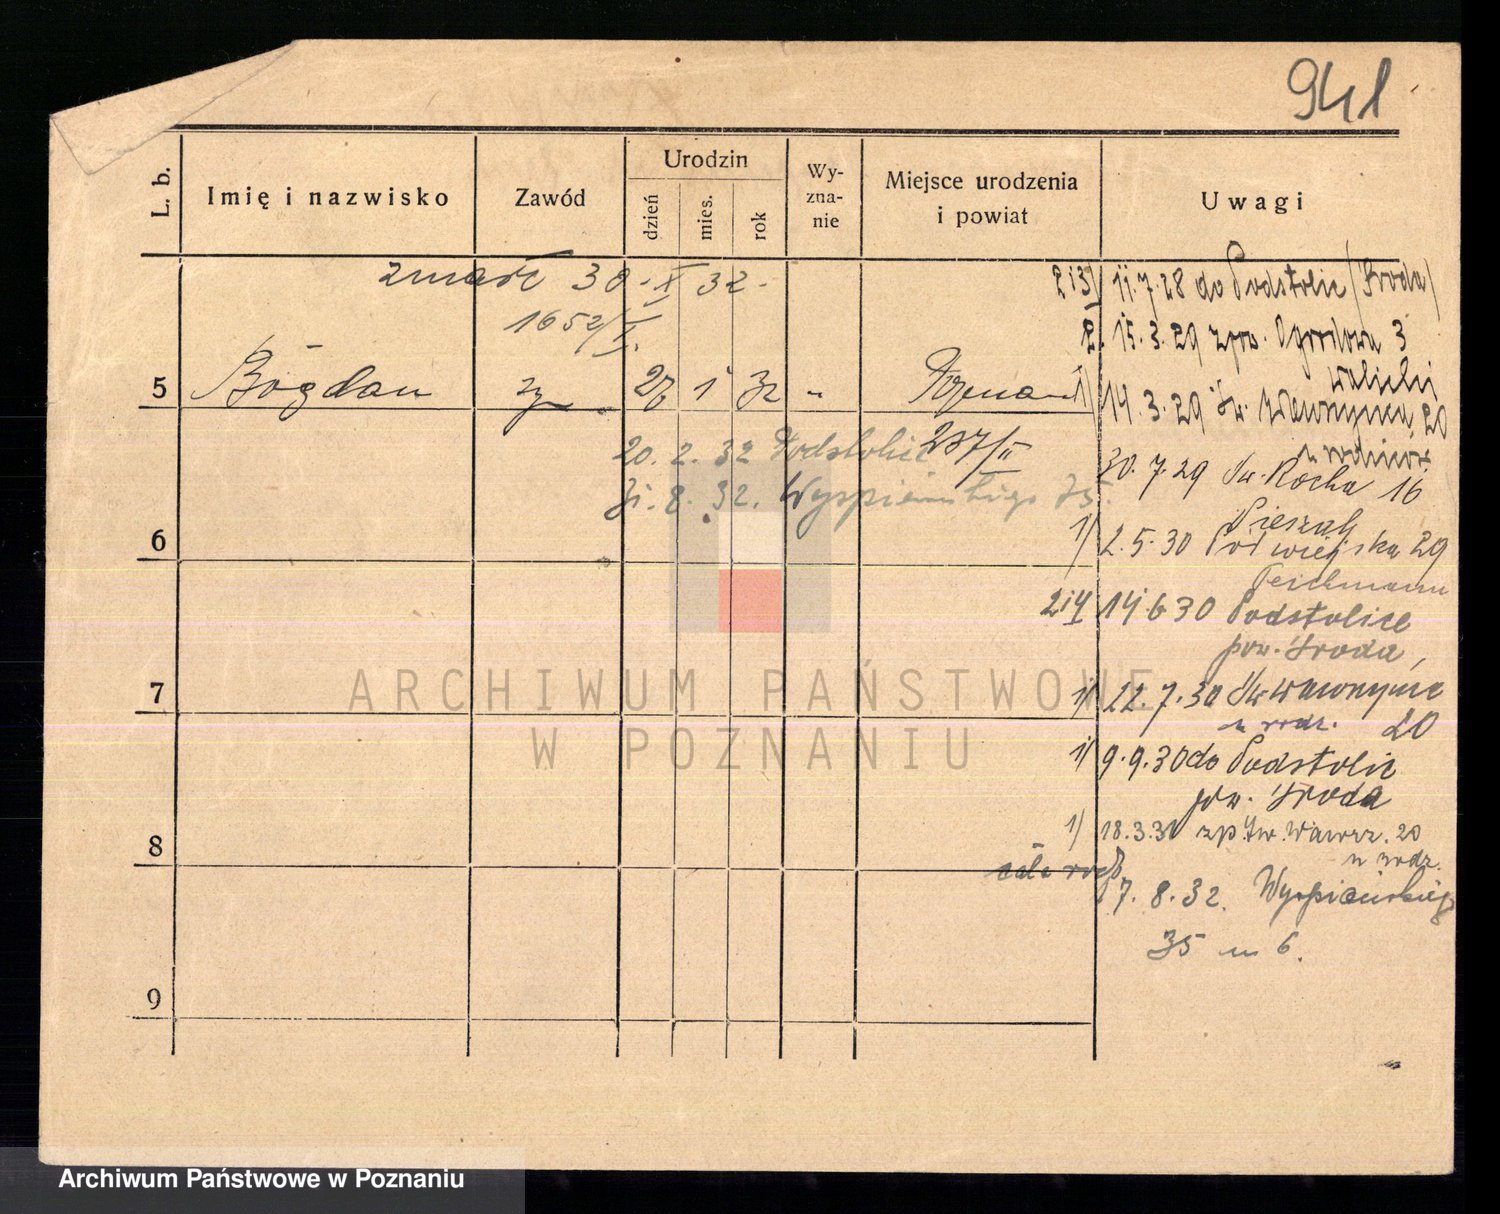 941
L. b.
Imię i nazwisko
Zawód
Urodzin
dzień
mies.
rok
Wy-
zna-
nie
Miejsce urodzenia
i powiat
Uwagi
zmarł 30. X 32.
1652/I.
5 Bogdan syn 27 1 32 " Poznań
237/II
20. 2. 32 Podstolic
31. 8. 32. Wyspiańskiego 35.
6
7
8
9
2 i 3/ 11.7.28 do Podstolic (Środa)
2. 15.3.29 zpow. Ogrodowa 3
1/ 14.3.29 Św. Wawrzyńca 20
u rodziców
30.7.29 Św. Rocha 16
1/ 2.5.30 Półwiejska 29
Teichmann
2 i 4 14 6 30 Podstolice
pow. Środa,
1/ 22.7.30 Św Wawrzyńca
u rodz. 20
1/ 9.9.30 do Podstolic
pow. Środa
1/ 18.3.31 zp Św. Wawrz. 20
u rodz.
cała rodz
17. 8. 32. Wyspiańskiego
35 m 6.
ARCHIWUM PAŃSTWOWE
W POZNANIU
Archiwum Państwowe w Poznaniu